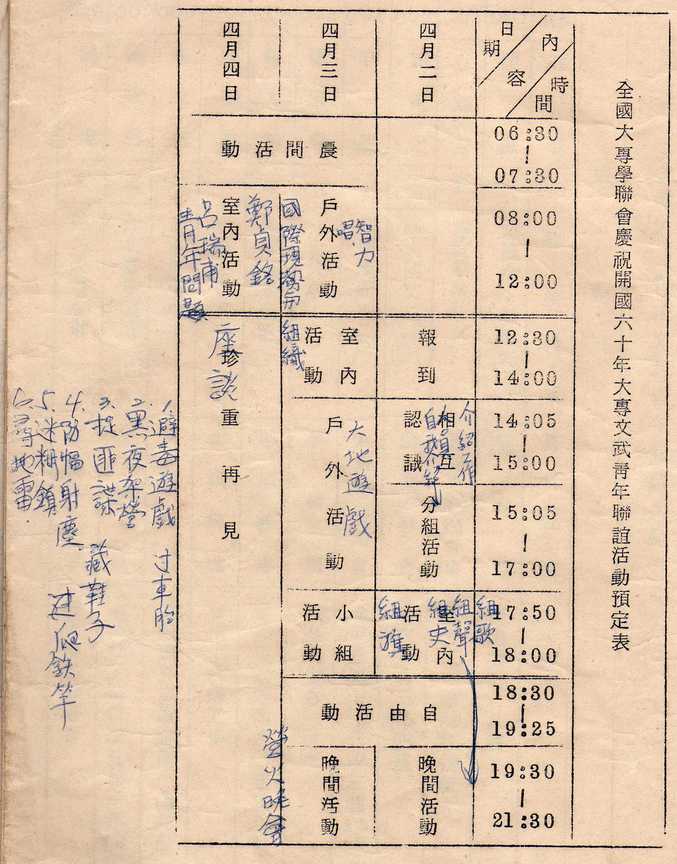 全國大專學聯會慶祝開國六十年大專文武青年聯誼活動預定表
日期
內容
時間
06:30 | 07:30
08:00 | 12:00
12:30 | 14:00
14:05 | 15:00
15:05 | 17:00
17:50 | 18:00
18:30 | 19:25
19:30 | 21:30
四月二日
報到
相互認識
介紹工作
分組活動
室內活動
組歌
組聲
組史
自由活動
晚間活動
四月三日
晨間活動
戶外活動
智力
唱
室內活動
戶外活動
大地遊戲
小組活動
晚間活動
國際現勢
組織
營火晚會
四月四日
室內活動
鄭貞銘
呂瑞甫
青年問題
座談
珍重再見
1.避毒遊戲 過車胎
2.黑夜架營
3.捉匪諜 藏鞋子
4.防幅射塵 爬鉄竿
5.迷糊鎮
6.尋地雷